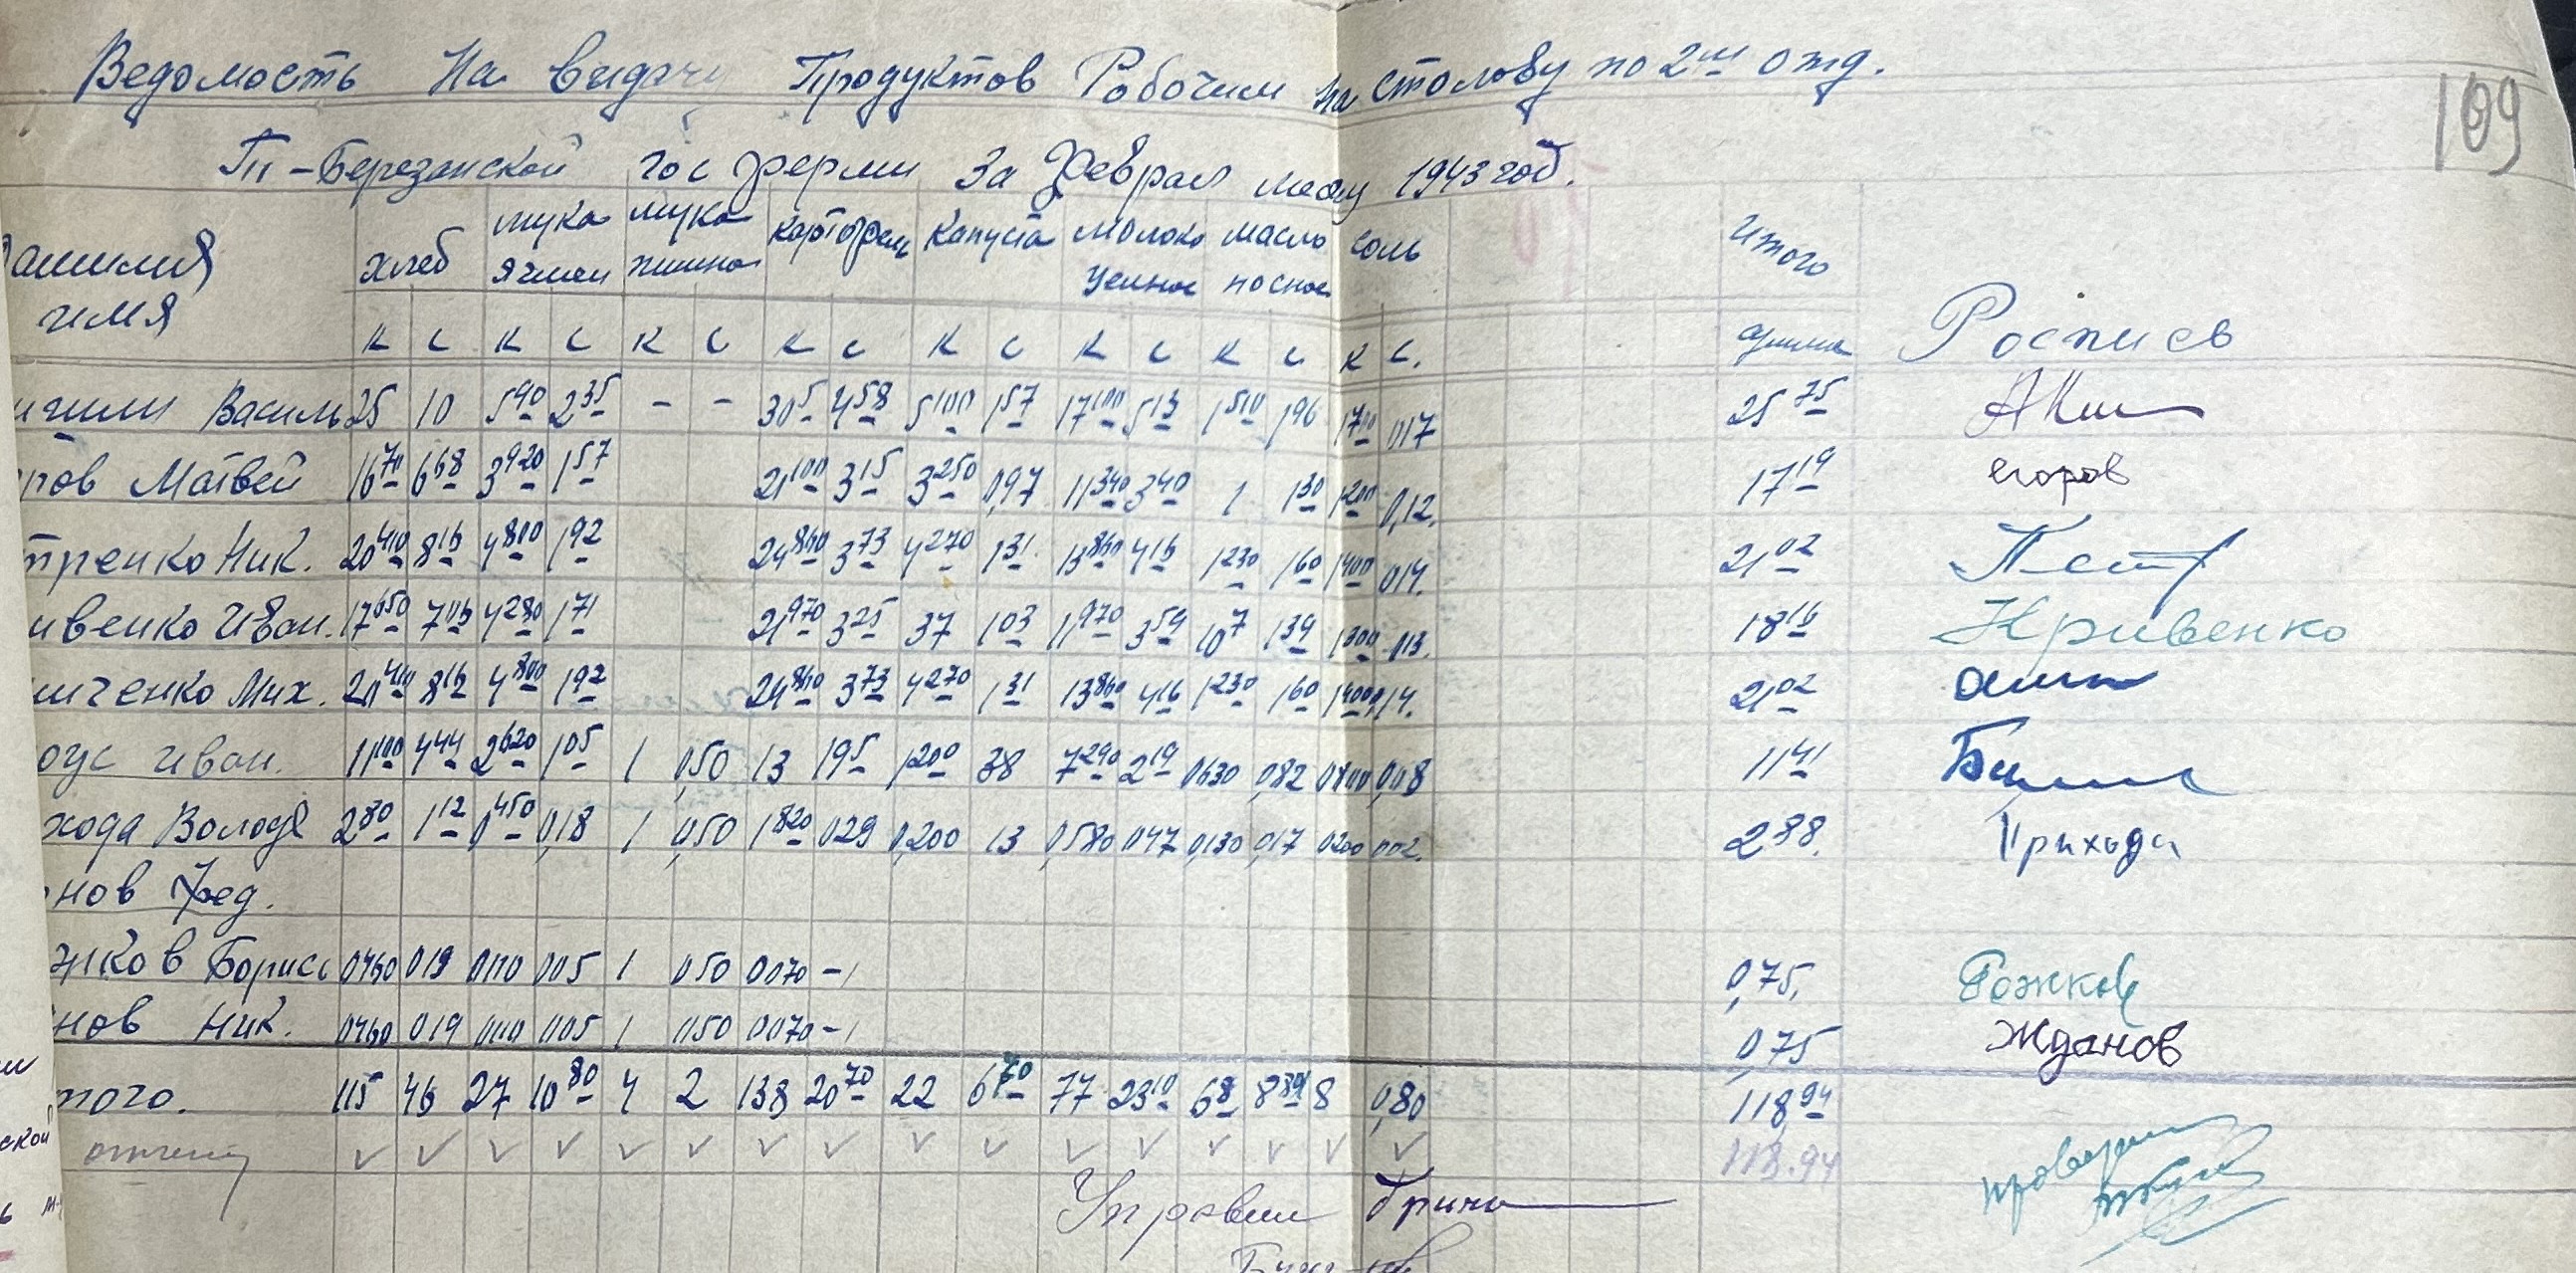 Ведомость на видачу Продуктов Робочим на столову по 2ш отд.
109
Тп-Березанской гос ферми за Феврал месяц 1943 год.
амилия имя хлеб мука ячмен мука пшинна картофель Капуста молоко цельное масло посное соль итого сумма Роспись
К С К С К С К С К С К С К С К С.
Василь 25 10 5 90 2 35 - - 30 5 4 58 5 100 1 57 17 100 5 13 1 510 196 1 700 017 25 75
ров Матвей 16 70 6 68 3 920 1 57 21 100 3 15 3 250 0,97 11 340 3 40 1 1 30 1 200 0,12. 17 19 егоров
тренко Ник. 20 410 8 16 4 800 1 92 24 860 3 73 4 270 1 31 13 860 4 16 1 230 1 60 1 400 014. 21 02 Петр
ивенко Иван. 17 650 7 06 4 280 1 71 21 970 3 25 37 1 03 11 970 3 59 10 7 1 39 1 300 013. 18 16 Кривенко
ниченко Мих. 20 410 8 16 4 800 1 92 24 860 3 73 4 270 1 31 13 860 4 16 1 230 1 60 1 400 0,14. 21 02
оус Иван. 11 100 4 44 2 620 1 05 1 0,50 13 1 95 1 200 38 7 290 2 19 0630 0,82 0800 0,08 11 41
хода Володя 2 80 1 12 0 450 0,18 1 0,50 1 820 029 0,200 13 0,580 047 0,130 0,17 0200 002. 2 88. Приходя
нов Фед.
жков Борис 0460 019 0110 005 1 050 0070 - 1 0,75, Рожков
нов Ник. 0460 019 0110 005 1 050 0070 - 1 0,75 Жданов
того. 115 46 27 10 80 4 2 138 20 70 22 6 70 77 23 10 6 8 8 84 8 0,80 118 94
118.94
Управлш проверил